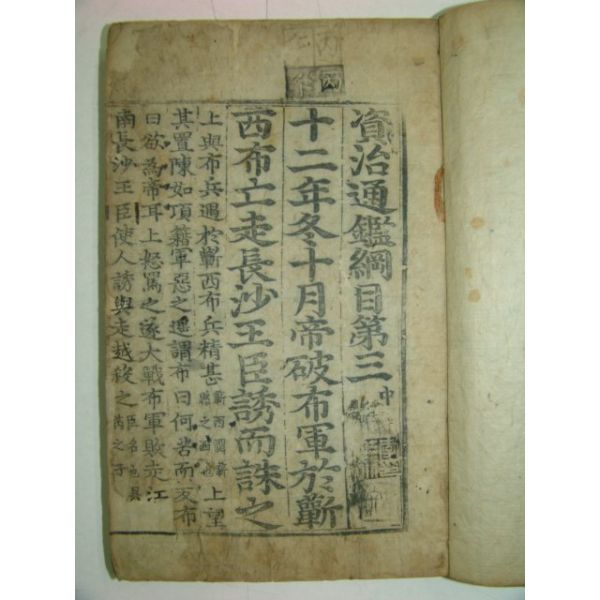 資治通鑑綱目第三中
十二年冬十月帝破布軍於蘄
西布亡走長沙王臣誘而誅之
上與布兵遇於蘄西布兵精甚上望
其置陳如項籍軍惡之遥謂布曰何苦而反布
曰欲為帝耳上怒罵之遂大戰布軍敗走江
南長沙王臣使人誘與走越殺之臣名也吳芮之子